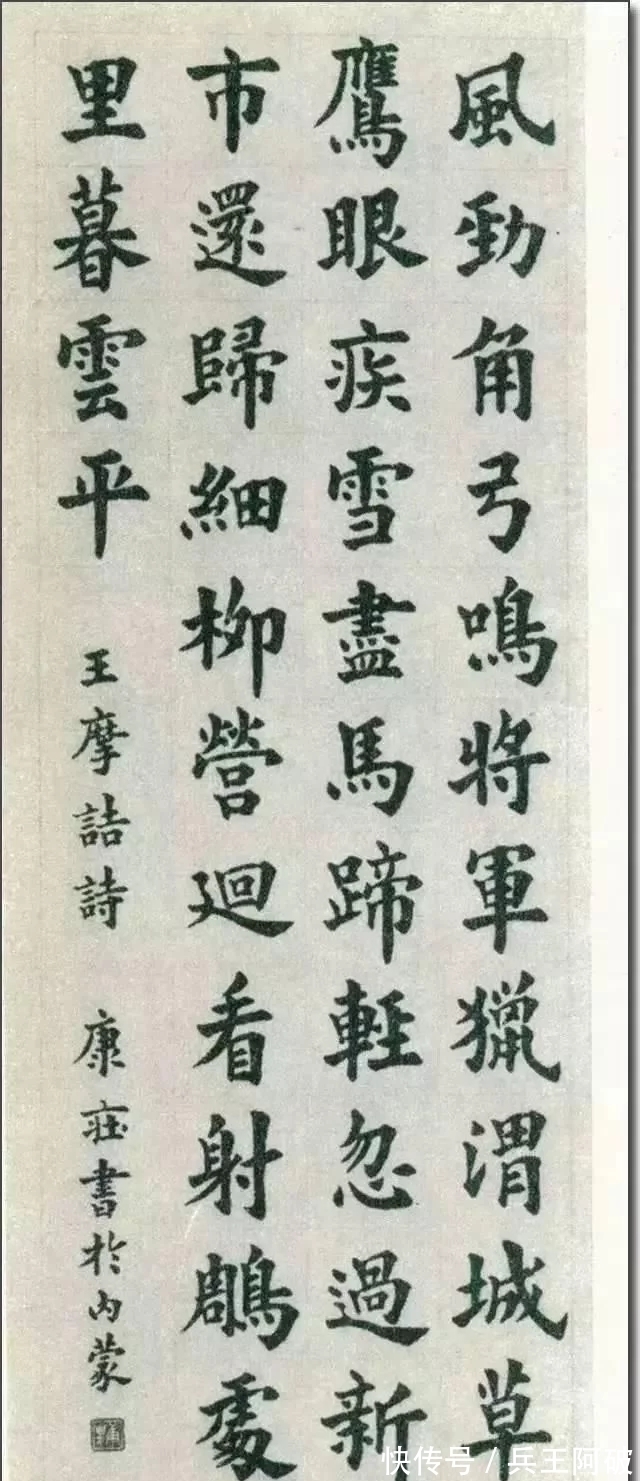 風勁角弓鳴將軍獵渭城草
鷹眼疾雪盡馬蹄輕忽過新
市還歸細柳營迴看射鵰處
里暮雲平
王摩詰詩 康莊書於內蒙
快传号 / 兵王阿破